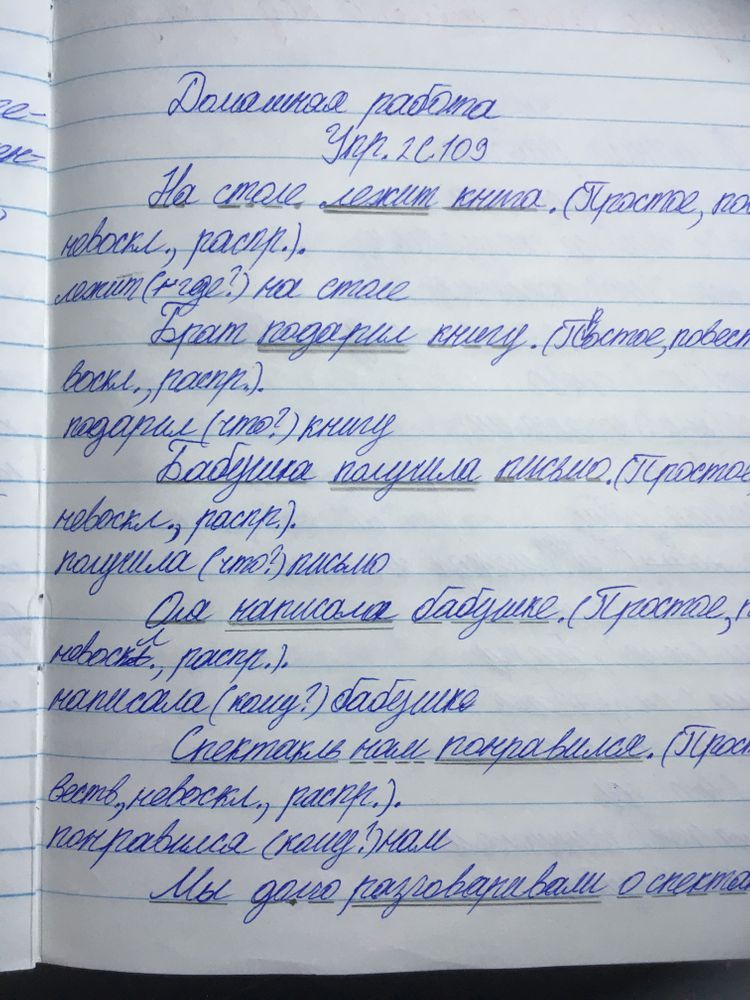 Домашняя работа
Упр. 2 С. 109
На столе лежит книга. (Простое, пов
невоскл., распр.).
лежит (где?) на столе
Брат подарил книгу. (Простое, повест
воскл., распр.).
подарил (что?) книгу
Бабушка получила письмо. (Простое
невоскл., распр.).
получила (что?) письмо
Оля написала бабушке. (Простое, п
невоскл., распр.).
написала (кому?) бабушке
Спектакль нам понравился. (Прост
веств., невоскл., распр.).
понравился (кому?) нам
Мы долго разговаривали о спекта